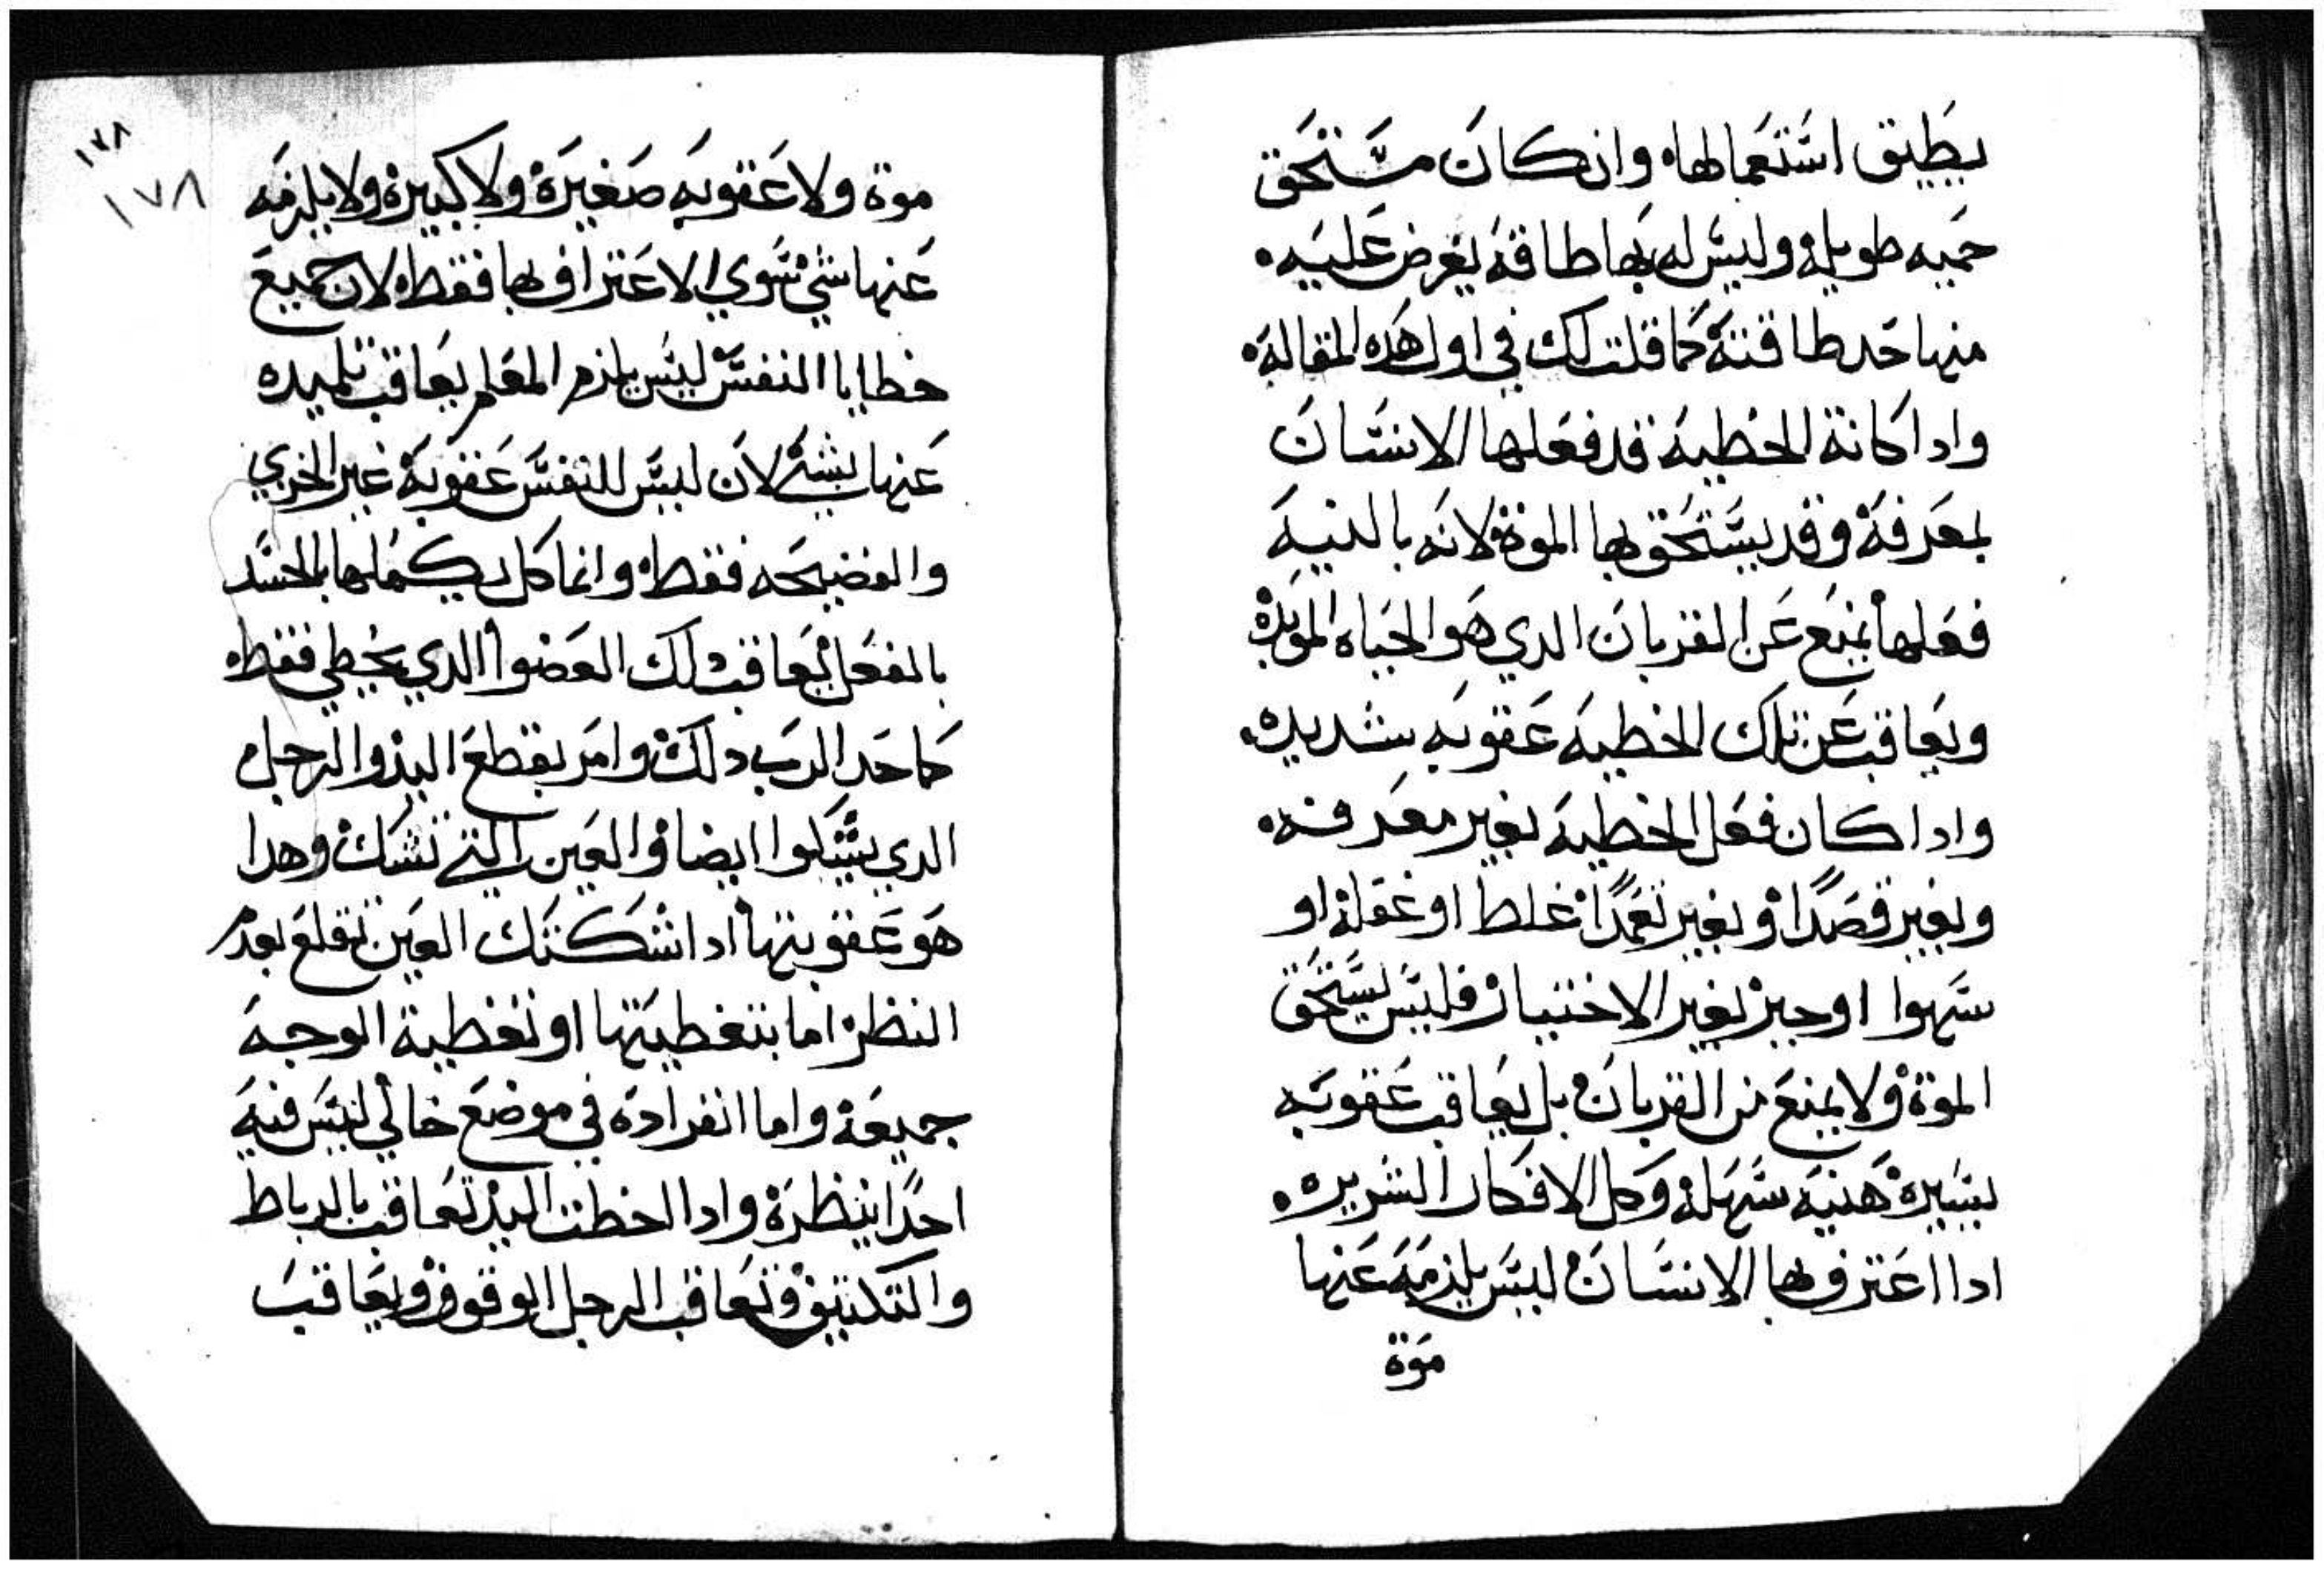 يطيق استعمالها وان كان مستحق
حميه طويله وليس له بها طاقة يفرض عليه
منها حد طاقتة كما قلت لك في اول هده المقالة
وادا كانة الخطية قد فعلها الانسان
بمعرفة وقد يستحق بها الموة لانه بالنية
فعلها يمنع عن القربان الدي هو الحياه الموبدة
ويعاقب عن تلك الخطية عقوبه شديده
وادا كان فعل الخطية بغير معرفه
وبغير قصدا وبغير تعمدا غلط او غفلة او
سهوا او جبر بغير الاختيار فليس يستحق
الموة ولا يمنع من القربان بل يعاقب عقوبه
يسيرة هنية سهلة وكل الافكار الشريره
ادا اعترف بها الانسان ليس يلزمه عنها
موة
١٧٨
١٧٨
موة ولا عقوبه صغيرة ولا كبيرة ولا يلزمه
عنها شي سوي الاعتراف بها فقط لان جميع
خطايا النفس ليس يلزم المعلم يعاقب تلميده
عنها بشي لان ليس للنفس عقوبة غير الخزي
والفضيحه فقط وانما كل يكملها بالجسد
بالفعل يعاقب دلك العضوا الدي يخطي فقط
كما حد الرب دلك وامر بقطع اليد والرجل
الدي يشككوا ايضا والعين التي تشك وهدا
هو عقوبتها ادا شككتك العين تقلع بعدم
النظر اما بتغطيتها او تغطية الوجه
جميعة واما انفراده في موضع خالي ليس فيه
احدا ينظرة وادا اخطت اليد تعاقب بالرباط
والتكتيف وتعاقب الرجل الوقوف ويعاقب